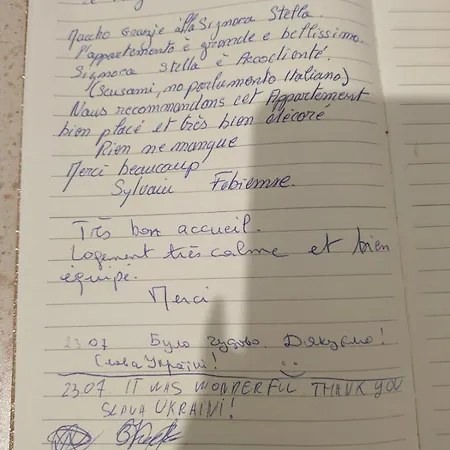 Macho Granzie alla Signora Stella.
l'appartemento è grande e bellissimo.
Signora Stella è Accoclienté.
(Scusami, no parlamento Italiano)
Nous recommandons cet Appartement
bien placé et très bien décoré
Rien ne manque
Merci beaucoup
Sylvain Fabienne.
Très bon accueil.
Logement très calme et bien
équipé.
Merci
23.07 Було чудово. Дякуємо!
Слава Україні!
23.07 IT WAS WONDERFUL THANK YOU
SLAVA UKRAINI!